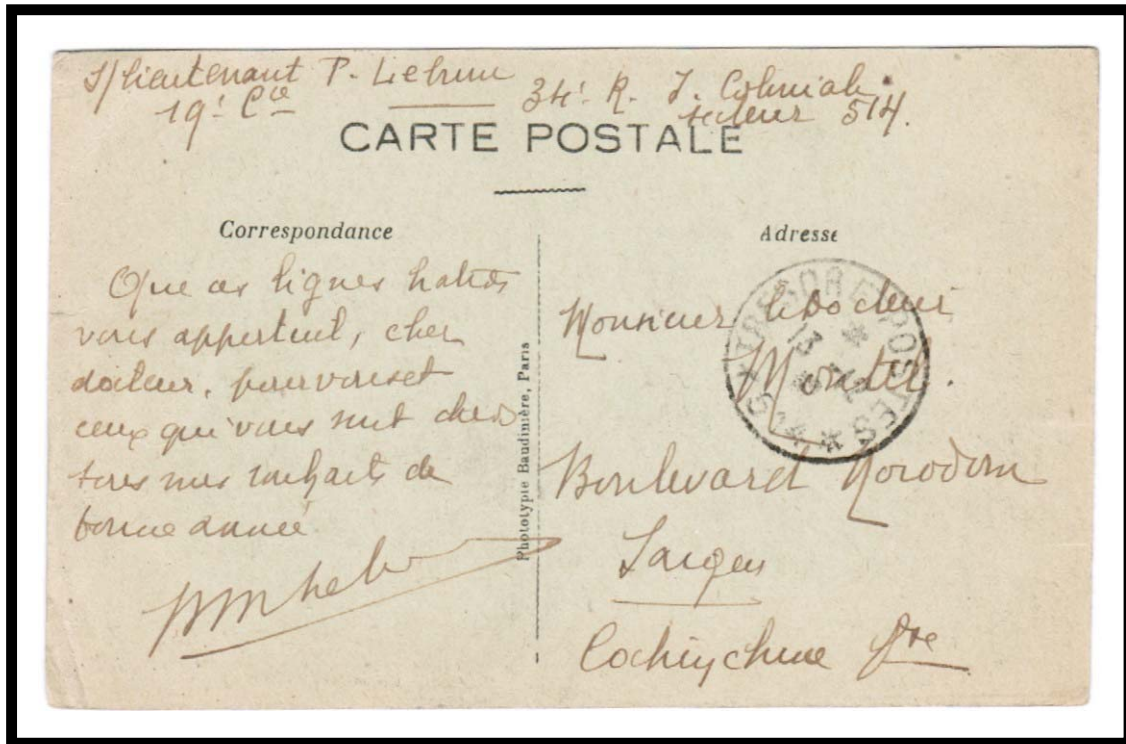 S/Lieutenant P. Lebrun
19e Cie 34e R. I. Coloniale
secteur 514.
CARTE POSTALE
Correspondance
Que ces lignes hatives
vous apportent, cher
docteur, pour vous et
ceux qui vous sont chers
tous mes souhaits de
bonne année
Phototypie Baudinière, Paris
Adresse
Monsieur le Docteur
Montel.
Boulevard Norodom
Saigon
Cochinchine fse
TRESOR ET POSTES